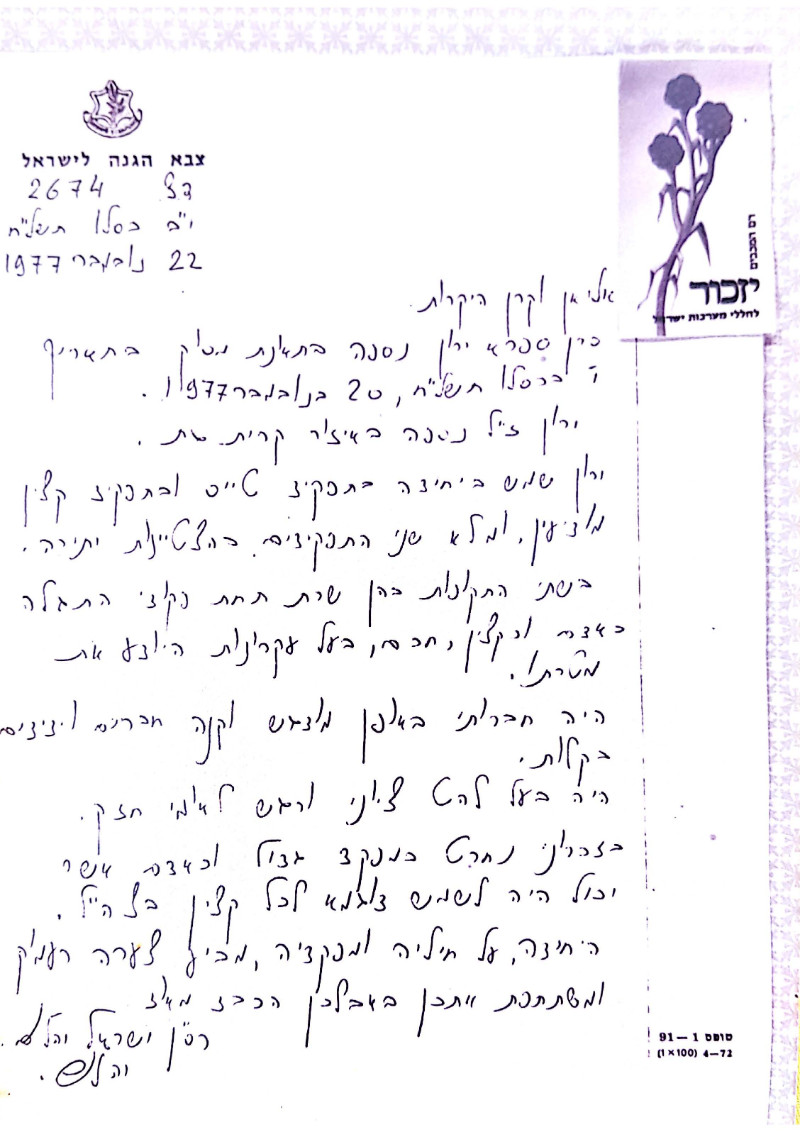 צבא הגנה לישראל
דצ 2674
י"ב כסלו תשל"ח
22 נובמבר 1977
יזכור
לחללי מערכות ישראל
וקרן היקרות
סרן ספרא ירון נספה בתאונת מסוק בתאריך
י' בכסלו תשל"ח, 20 בנובמבר 1977.
ירון ז"ל נספה באיזור קרית גת.
ירון שמש ביחידה בתפקיד טייס ובתפקיד קצין
מודיעין, ומלא שני התפקידים בהצטיינות יתירה.
בשתי התקופות בהן שרת תחת פקודי התגלה
כאדם וכקצין, חכם, בעל עקרונות היודע את
מטרתו.
היה חברותי באופן מודגש וקנה חברים וידידים
בקלות.
היה בעל להט ציוני ורגש לאומי חזק.
בזכרוני נחרט כמפקד גדול וכאדם אשר
יכול היה לשמש דוגמא לכל קצין בצה"ל.
היחידה, על חייליה ומפקדיה, מביע צערה העמוק
ומשתתפת אתכן באבלכן הכבד מאד
רס"ן ישראל
טופס 1 — 91
(1×100) 4—72